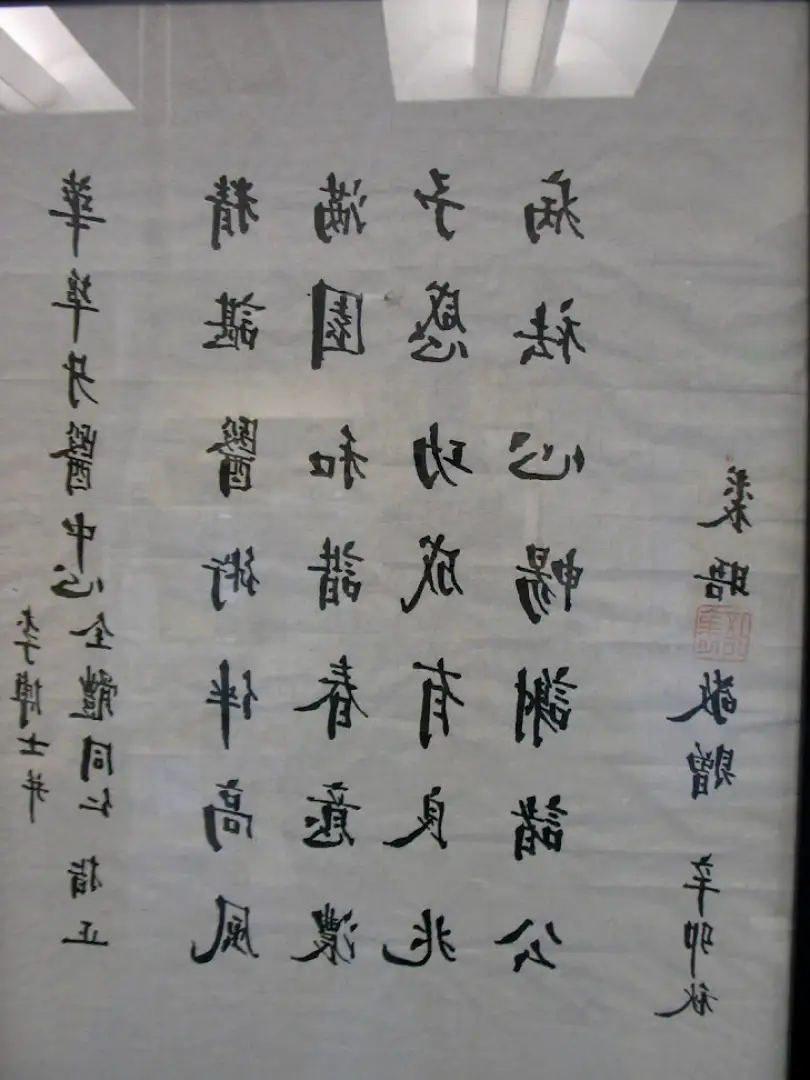 華埠牙醫中心
李博士并
全體同仁 指正
精諶醫術伴高風
滿園和諧春意濃
予感功成有良兆
病祛心暢謝諸公
裘 敬贈 辛卯秋